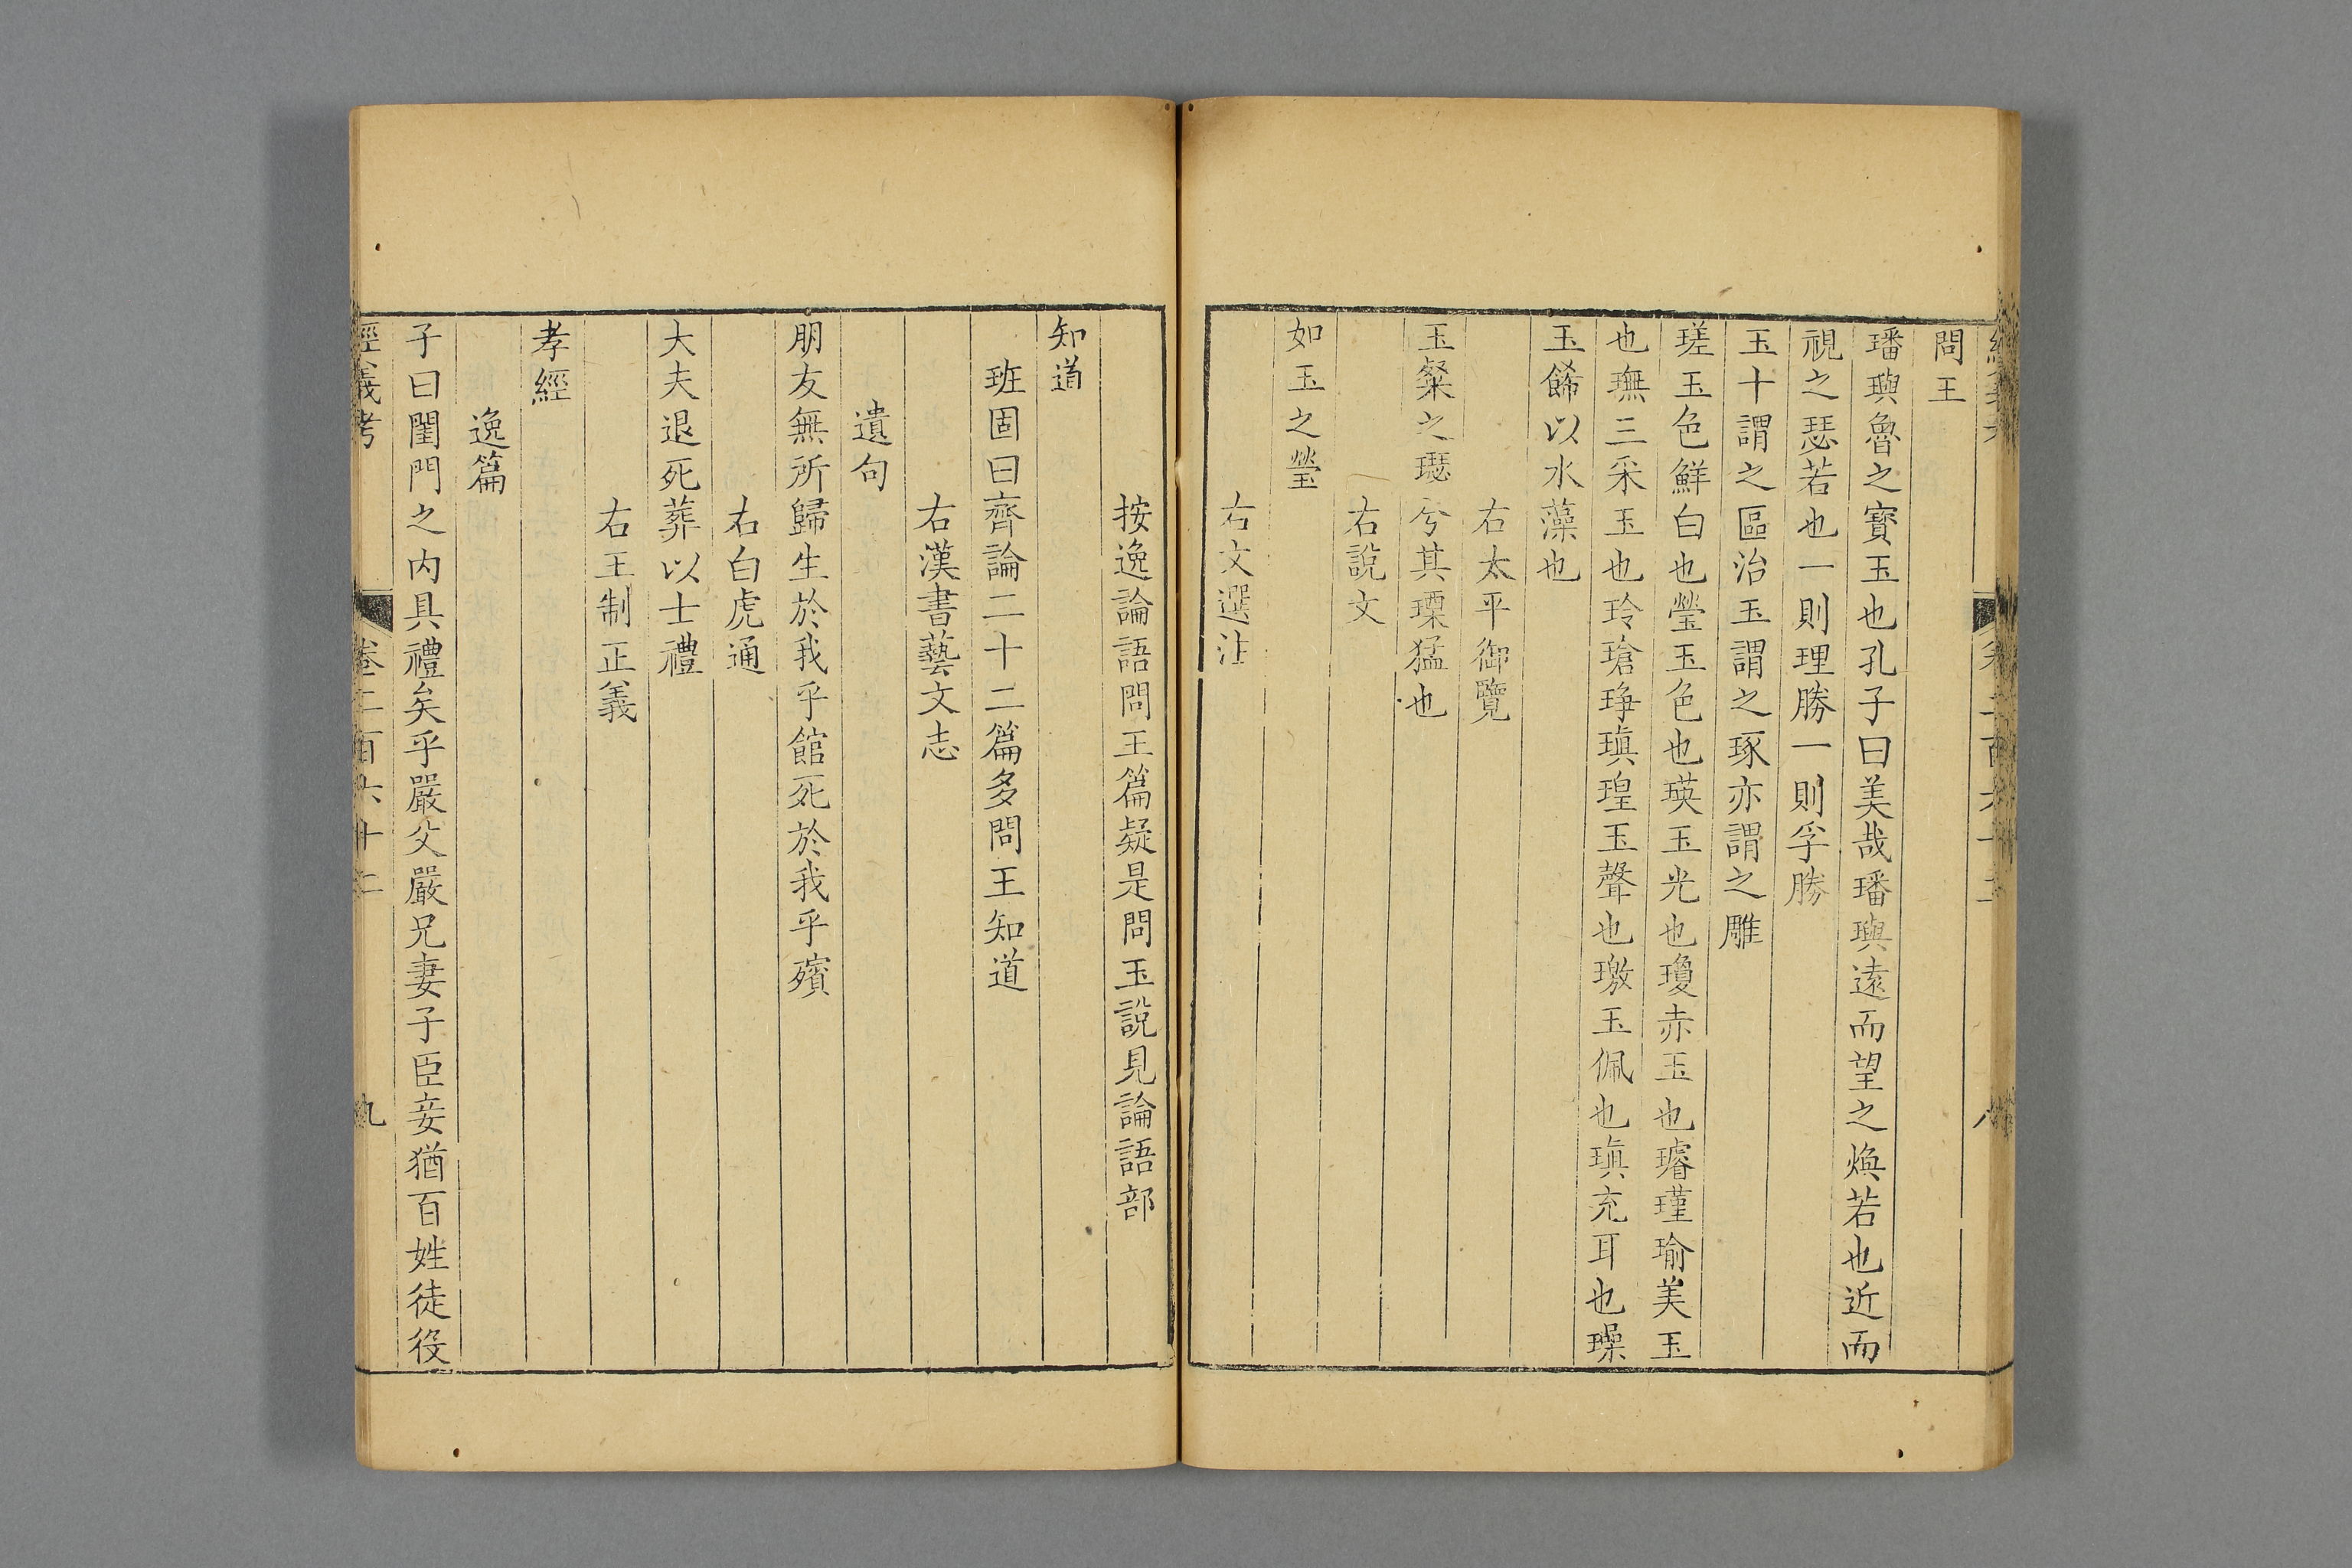 問王
璠璵魯之寶玉也孔子曰美哉璠璵遠而望之煥若也近而
視之瑟若也一則理勝一則孚勝
玉十謂之區治玉謂之琢亦謂之雕
瑳玉色鮮白也瑩玉色也瑛玉光也瓊赤玉也璿瑾瑜美玉
也璑三采玉也玲瑲琤瑱瑝玉聲也璬玉佩也瑱充耳也璪
玉飾以水藻也
右太平御覽
玉粲之璱兮其瑮猛也
右說文
如玉之瑩
右文選注
按逸論語問王篇疑是問玉說見論語部
知道
班固曰齊論二十二篇多問王知道
右漢書藝文志
遺句
朋友無所歸生於我乎館死於我乎殯
右白虎通
大夫退死葬以士禮
右王制正義
孝經
逸篇
子曰閨門之内具禮矣乎嚴父嚴兄妻子臣妾猶百姓徒役
經義考 卷二百六十二 九